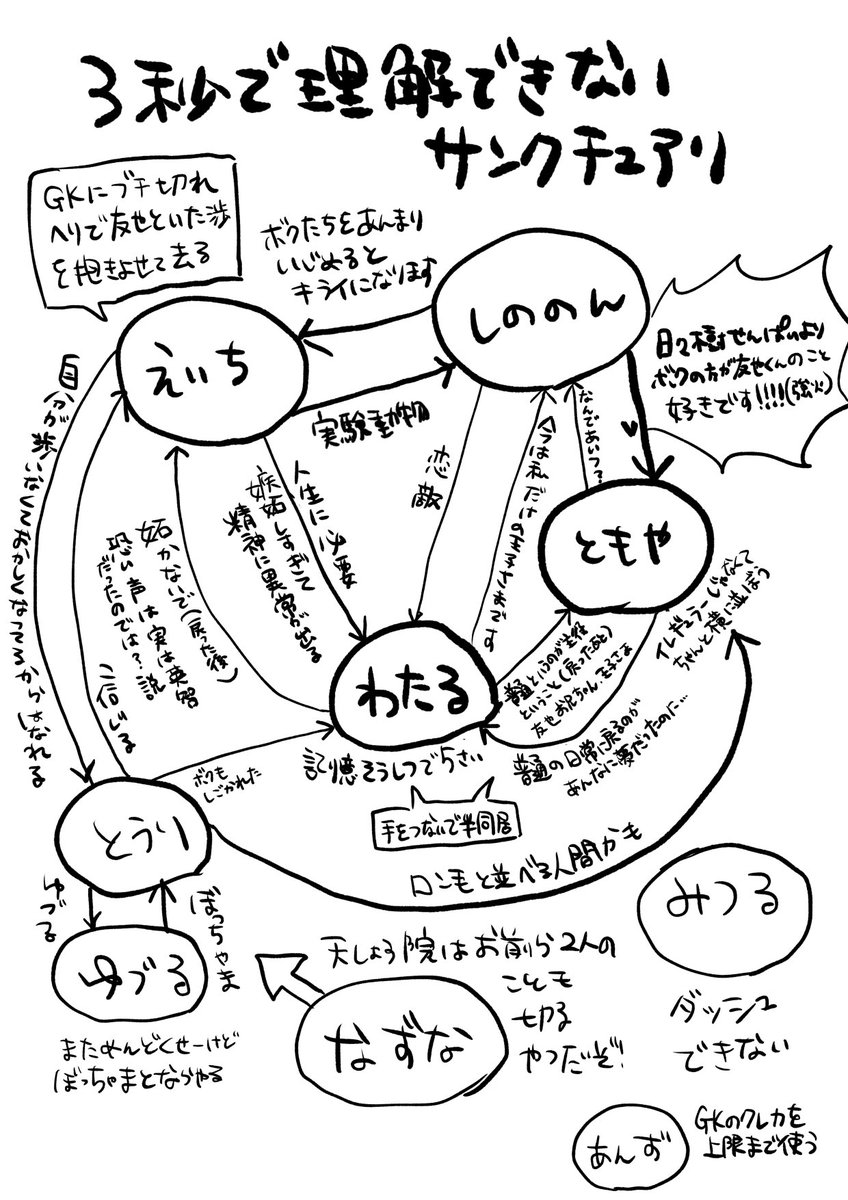 3秒で理解できない
サンクチュアリ
GKにブチ切れ
ヘリで友也といた渉
を抱きよせて去る
ボクたちをあんまり
いじめると
キライになります
しののん
えいち
日々樹せんぱいより
ボクの方が友也くんのこと
好きです!!!!(強火)
実験動物
恋敵
今は私だけの王子さまです
なんであいつ?
ともや
自分が歩いなくておかしくなってるからはなれる
信じる
妬かないで(戻った後)
恐い声は実は英智
だったのでは?説
人生に必要
嫉妬しすぎて
精神に異常が出る
わたる
普通というのが主役
ということ(戻ったあと)
友也お兄ちゃん、王子さま
イレギュラーじゃなくて
ちゃんと横に並ぼう
普通の日常に戻るのが
あんなに夢だったのに…
記憶そうしつで5さい
手をつないで半同居
ボクも
しごかれた
とうり
ロン毛と並べる人間かも
ゆづる
ぼっちゃま
ゆづる
まためんどくせーけど
ぼっちゃまとならやる
天しょう院はお前ら2人の
ことも
切る
やつだぞ!
なずな
みつる
ダッシュ
できない
あんず
GKのクレカを
上限まで使う